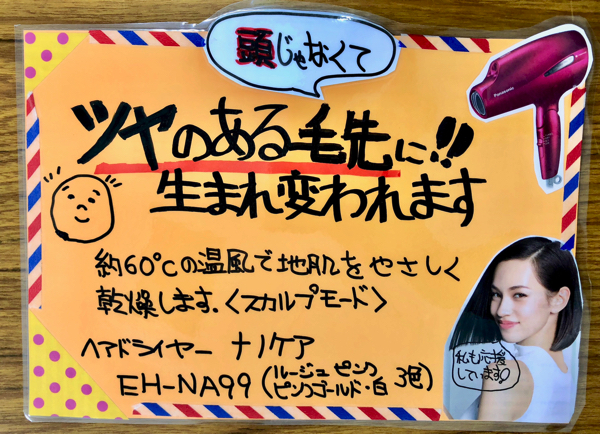 頭じゃなくて
Panasonic
ツヤのある毛先に!!
生まれ変われます
約60℃の温風で地肌をやさしく
乾燥します.〈スカルプモード〉
ヘアドライヤー ナノケア
EH-NA99(ルージュピンク
ピンクゴールド・白 3色)
私も応援
しています!